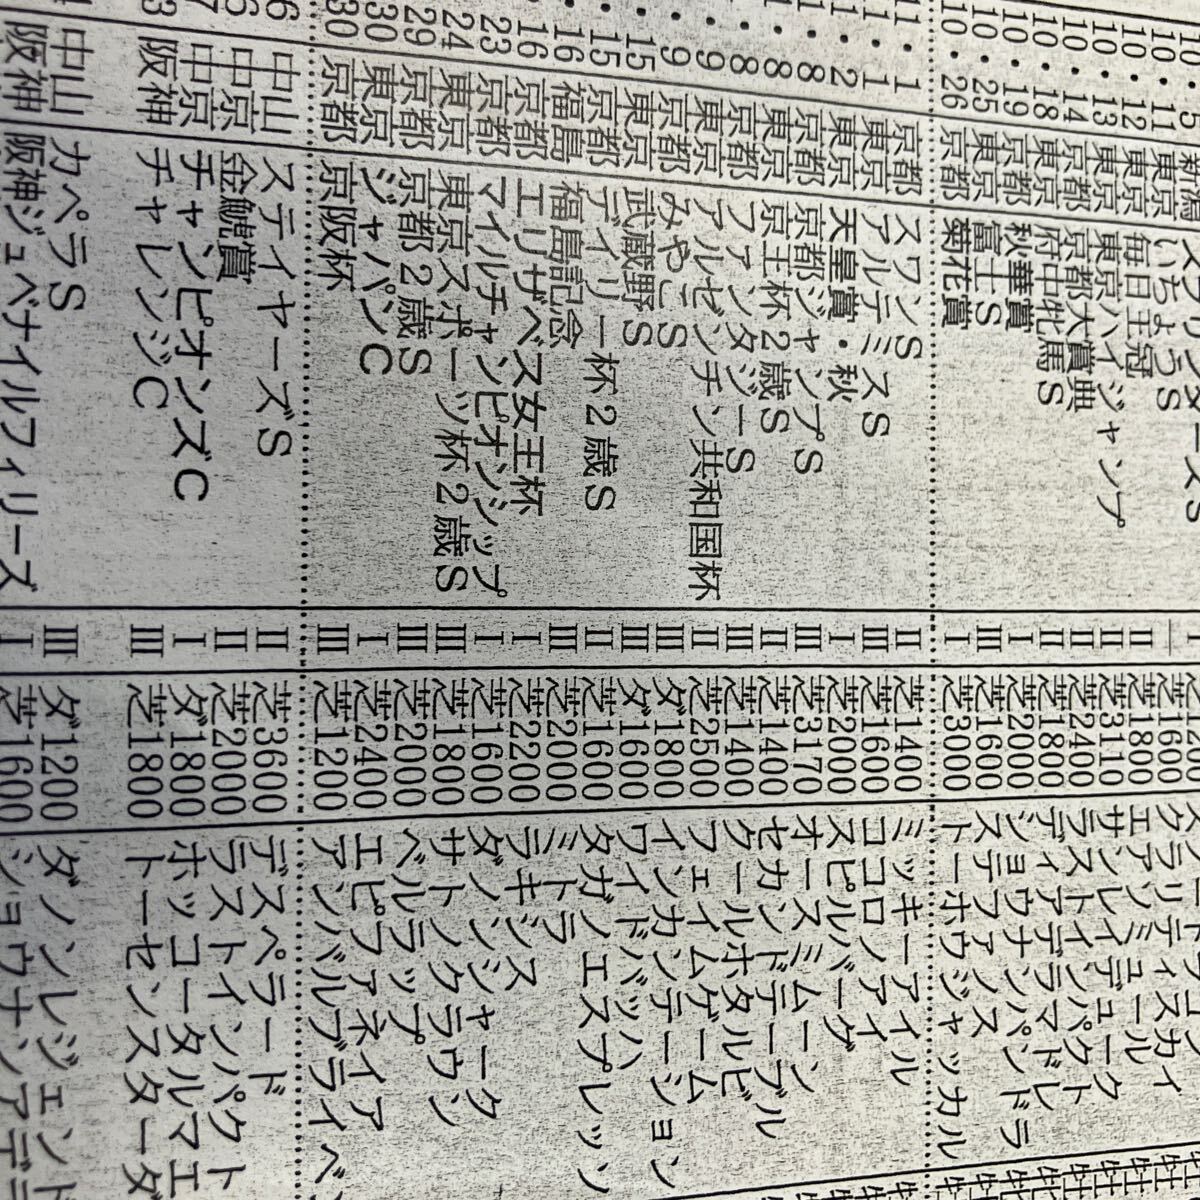 10・5 新潟 スプリンターズS 1200
10・11 東京 いちょうS 芝1600 クラリティスカイ
10・12 東京 毎日王冠 II 芝1800 エアソミュール
10・13 東京 東京ハイジャンプ II 芝3110 サンレイデューク
10・14 京都 京都大賞典 II 芝2400 ラストインパクト
10・18 東京 府中牝馬S II 芝1800 ディアデラマドレ
10・19 京都 秋華賞 I 芝2000 ショウナンパンドラ
10・25 東京 富士S III 芝1600 ステファノス
10・26 京都 菊花賞 I 芝3000 トーホウジャッカル
11・1 京都 スワンS II 芝1400 ミッキーアイル
1 東京 アルテミスS III 芝1600 ココロノアイ
2 東京 天皇賞・秋 I 芝2000 スピルバーグ
8 京都 京都ジャンプS III 芝3170 オースミムーン
8 東京 京王杯2歳S II 芝1400 セカンドテーブル
8 京都 ファンタジーS III 芝1400 クールホタルビ
9 東京 アルゼンチン共和国杯 II 芝2500 フェイムゲーム
9 京都 みやこS III ダ1800 インカンテーション
15 東京 武蔵野S III ダ1600 ワイドバッハ
15 京都 デイリー杯2歳S II 芝1600 タガノエスプレッソ
16 福島 福島記念 III 芝2000 ミトラ
16 京都 エリザベス女王杯 I 芝2200 ラキシス
23 京都 マイルチャンピオンシップ I 芝1600 ダノンシャーク
24 東京 東京スポーツ杯2歳S III 芝1800 サトノクラウン
29 京都 京都2歳S III 芝2000 ベルラップ
30 東京 ジャパンC I 芝2400 エピファネイア
30 京都 京阪杯 III 芝1200 アンバルブライベン
6 中山 ステイヤーズS II 芝3600 デスペラード
6 中京 金鯱賞 II 芝2000 ラストインパクト
7 中京 チャンピオンズC I ダ1800 ホッコータルマエ
13 阪神 チャレンジC III 芝1800 トーセンスターダム
中山 カペラS III ダ1200 ダノンレジェンド
阪神 阪神ジュベナイルフィリーズ I 芝1600 ショウナンアデ